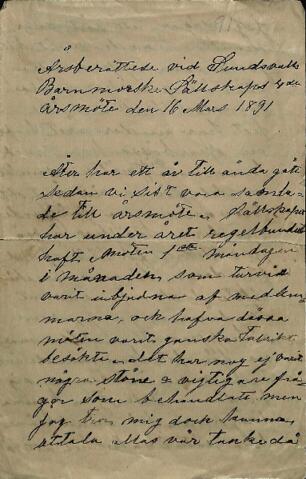 Årsberättelse vid Sundsvalls
Barnmorske Sällskaps
årsmöte den 16 Mars 1891
Åter har ett år till ända gått
sedan vi sist voro samla-
de till årsmöte. Sällskapet
har under året regelbundet
haft möten 1sta måndagen
i månaden som turvis
varit inbjudna af medlem
marna, och hafva dessa
möten varit ganska talrikt
besökte, det har nog ej varit
några större & vigtigare frå
gor som behandlats men
jag tror mig dock kunna
uttala allas vår tanke då